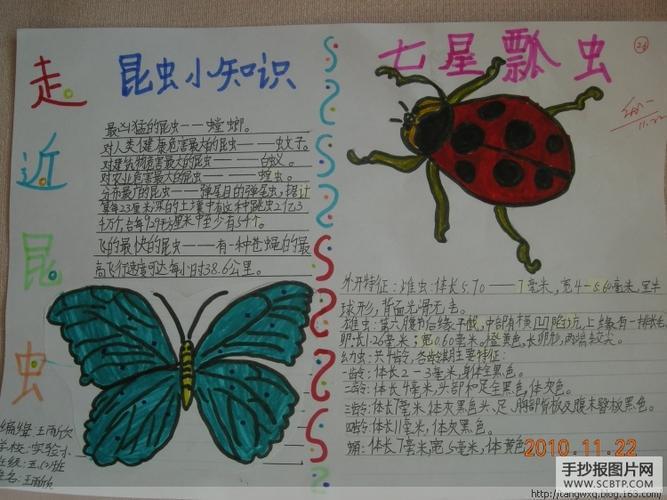 走近昆虫
昆虫小知识
最凶猛的昆虫——螳螂。
对人类健康危害最大的昆虫——蚊子。
对建筑物危害最大的昆虫——白蚁。
对农业危害最大的昆虫——蝗虫。
分布最广的昆虫——弹尾目的弹尾虫,据计
算每23厘米深的土壤中有这种跳虫2亿3
千万个,合每9.29平方厘米中至少有54个。
飞的最快的昆虫——有一种苍蝇的最
高飞行速度可达每小时38.6公里。
七星瓢虫
26
11.22
外形特征:雌虫:体长5.70—7毫米,宽4—5.60毫米,呈半
球形,背面光滑无毛。
雄虫:第六腹节后缘平截,中部有横凹陷,上缘有一排长毛
卵:长1.26毫米;宽0.60毫米。橙黄色,长卵形,两端较尖。
幼虫:共4龄,各龄期主要特征:
一龄:体长2—3毫米,身体全黑色。
二龄:体长4毫米,头部和足全黑色,体灰色。
三龄:体长7毫米,体灰黑色,头、足、胸部背板及腹末臀板黑色。
四龄:体长11毫米,体灰黑色。
蛹:体长7毫米,宽5毫米,体黄色
编辑 王雨欣
学校:实验小
班级:五(5)班
姓名:王雨欣
2010.11.22
手抄报图片网
WWW.SCBTP.COM
http://tangwxq.blog.163.com